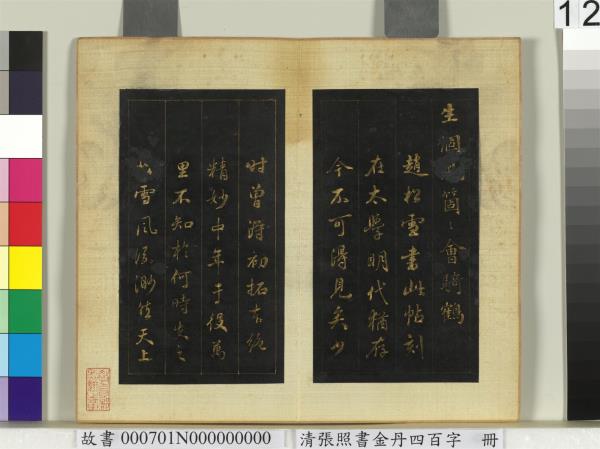 生個個箇箇會騎鶴
趙松雪書此帖刻
在太學明代猶存
今不可得見矣少
時曾得初拓古絕
精妙中年于役萬
里不知於何時失之
冰雪風度渺然天上
12
故書 000701N000000000
清張照書金丹四百字 冊